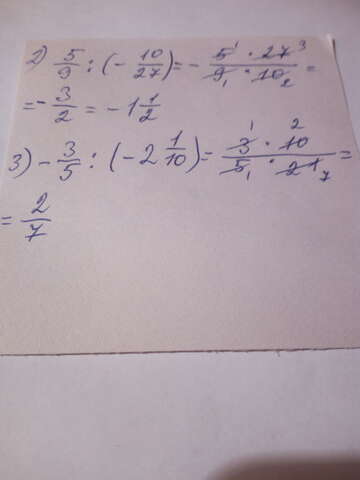 2) 5/9 : (- 10/27) = - 5¹ · 27³ / 9₁ · 10₂ =
= - 3/2 = - 1 1/2
3) - 3/5 : (- 2 1/10) = 3¹ · 10² / 5₁ · 21₇ =
= 2/7